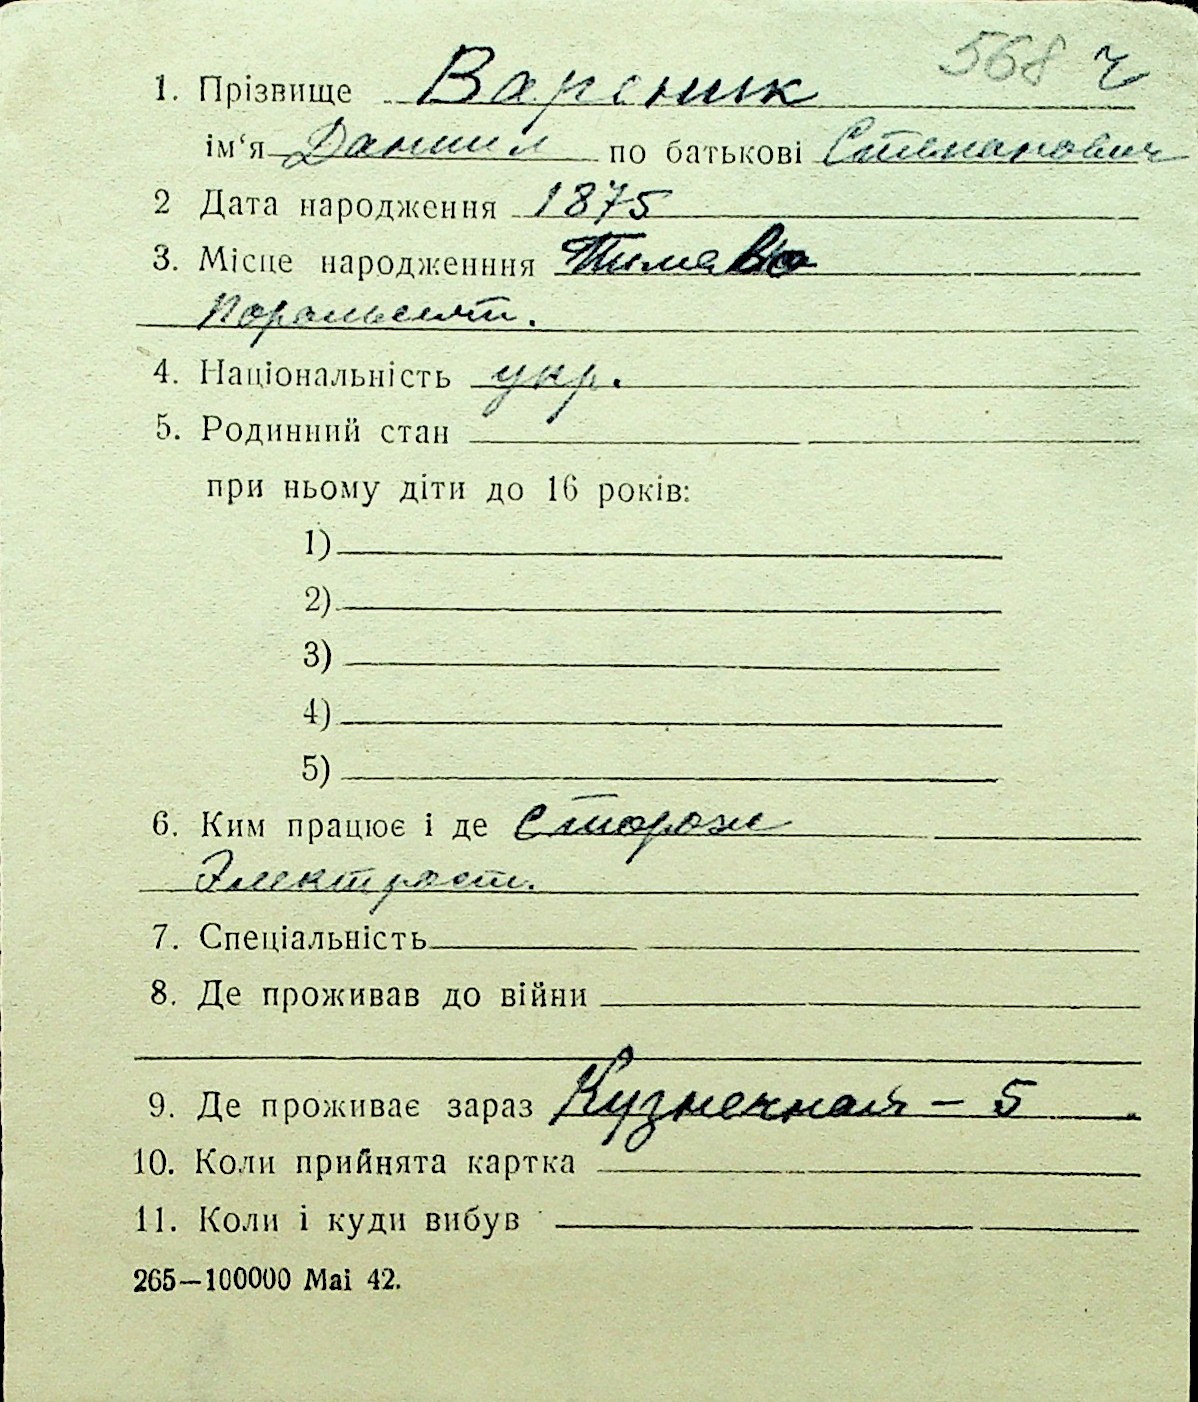 568 ч
1. Прізвище Вареник
ім‘я Даниил по батькові Степанович
2 Дата народження 1875
3. Місце народженння
4. Національність укр.
5. Родинний стан
при ньому діти до 16 років:
1)
2)
3)
4)
5)
6. Ким працює і де Сторож
Электрост.
7. Спеціальність
8. Де проживав до війни
9. Де проживає зараз Кузнечная – 5
10. Коли прийнята картка
11. Коли і куди вибув
265—100000 Mai 42.